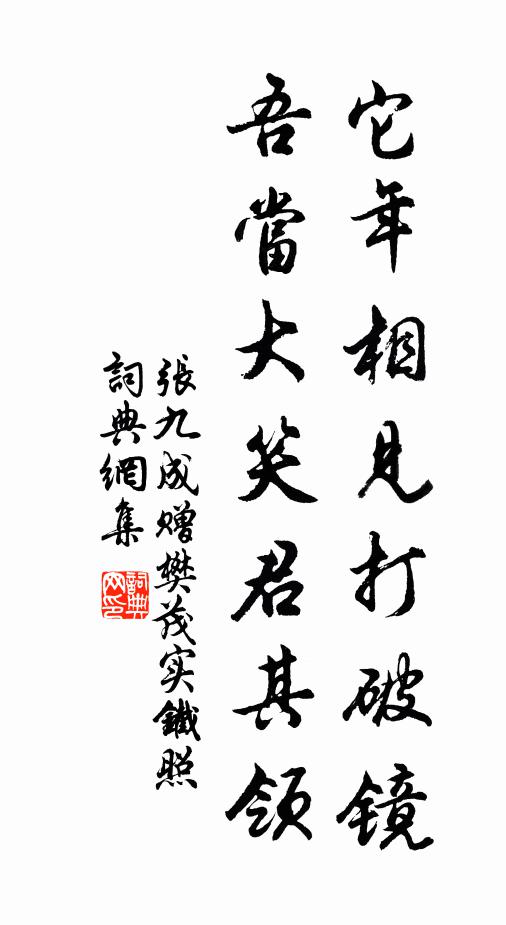 它年相見打破鏡
吾當大笑君其領
張九成贈樊茂实鐵照
詞典網集
詞典
网印